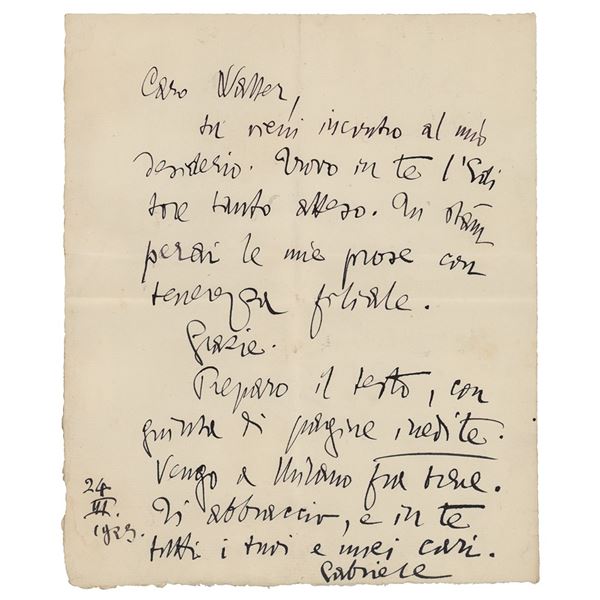 Caro Walter,
tu vieni incontro al mio
desiderio. Trovo in te l'Edi
tore tanto atteso. Tu stam
perai le mie prose con
tenerezza filiale.
Grazie.
Preparo il testo, con
giunta di pagine inedite.
Vengo a Milano fra breve.
Ti abbraccio, e in te
tutti i tuoi e miei cari.
Gabriele
24
III.